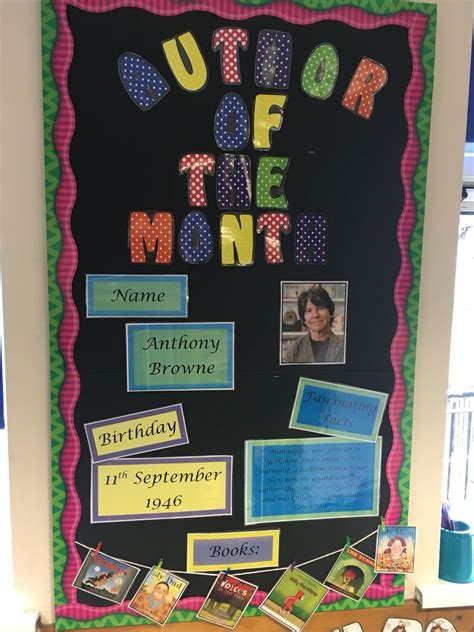 AUTHOR
OF
THE
MONTH
Name
Anthony
Browne
Fascinating
Facts
Birthday
11th September
1946
Anthony Browne grew up in
Yorkshire and wanted to be a
journalist, a
He is now the award winning
author
and was Children's
Books:
My Dad
Voices
in the Park
Willy the Wimp
My Mum